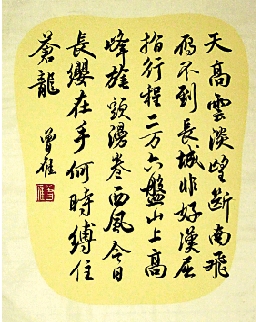 天高雲淡望斷南飛
雁不到長城非好漢屈
指行程二万六盤山上高
峰旄頭漫卷西風今日
長纓在手何時縛住
蒼龍
曾